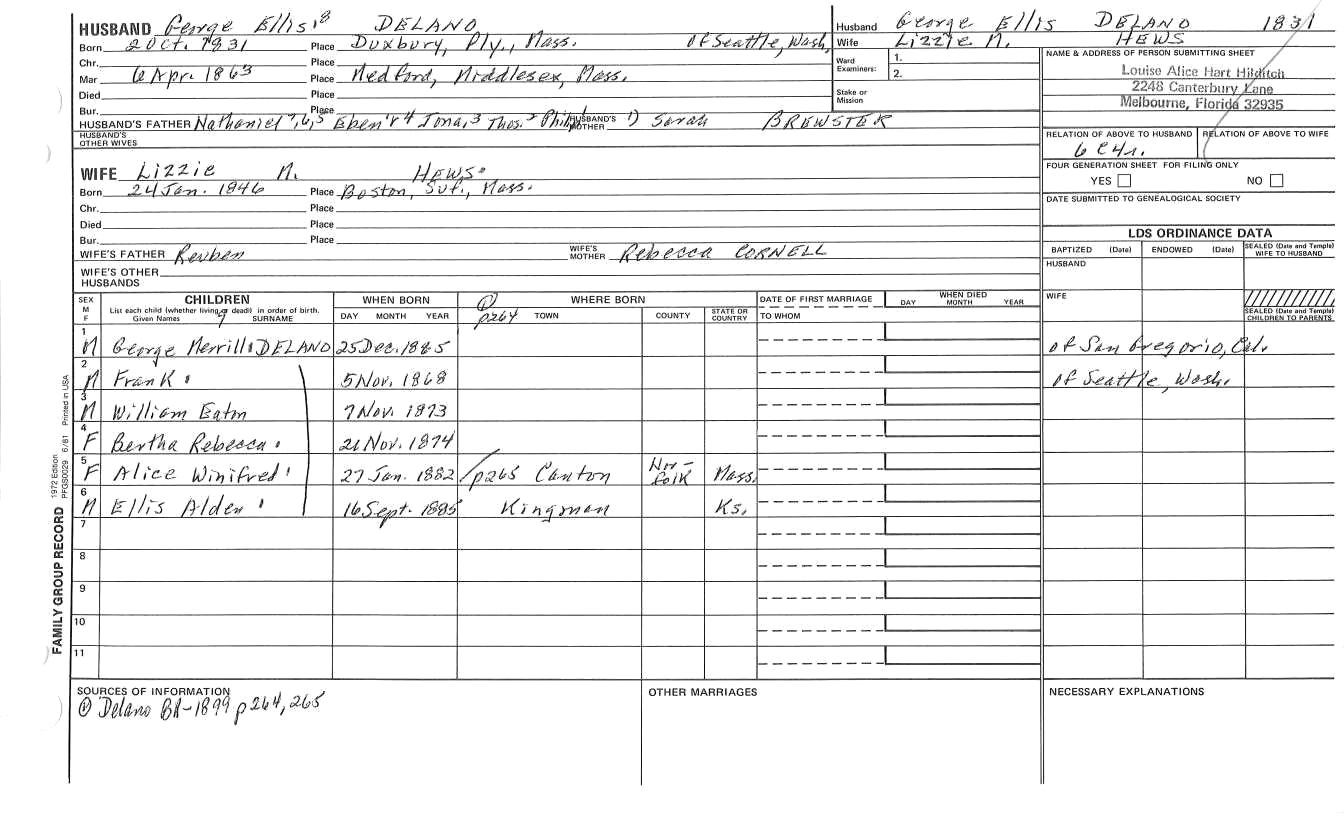 HUSBAND George Ellis 8 DELANO
Born 2 Oct. 1831 Place Duxbury, Ply., Mass. of Seattle, Wash,
Chr. Place
Mar 6 Apr. 1863 Place Medford, Middlesex, Mass.
Died Place
Bur. Place
HUSBAND'S FATHER Nathaniel 7,6,5 Eben'r 4 Jona, 3 Thos. 2 Philip HUSBAND'S MOTHER 1) Sarah BREWSTER
HUSBAND'S OTHER WIVES
WIFE Lizzie M. HEWS
Born 24 Jan. 1846 Place Boston, Suf., Mass.
Chr. Place
Died Place
Bur. Place
WIFE'S FATHER Reuben WIFE'S MOTHER Rebecca CORNELL
WIFE'S OTHER HUSBANDS
Husband George Ellis DELANO 1831
Wife Lizzie M. HEWS
Ward Examiners: 1.
2.
Stake or Mission
NAME & ADDRESS OF PERSON SUBMITTING SHEET
Louise Alice Hart Hilditch
2248 Canterbury Lane
Melbourne, Florida 32935
RELATION OF ABOVE TO HUSBAND RELATION OF ABOVE TO WIFE
6 C4r.
FOUR GENERATION SHEET FOR FILING ONLY
YES NO
DATE SUBMITTED TO GENEALOGICAL SOCIETY
LDS ORDINANCE DATA
BAPTIZED (Date) ENDOWED (Date) SEALED (Date and Temple) WIFE TO HUSBAND
HUSBAND
WIFE
SEALED (Date and Temple) CHILDREN TO PARENTS
SEX M F CHILDREN List each child (whether living or dead) in order of birth. Given Names SURNAME WHEN BORN DAY MONTH YEAR WHERE BORN TOWN COUNTY STATE OR COUNTRY DATE OF FIRST MARRIAGE TO WHOM WHEN DIED DAY MONTH YEAR
9 ① p264
1 M George Merrill DELANO 25 Dec. 1865 of San Gregorio, Cal.
2 M Frank 5 Nov. 1868 of Seattle, Wash.
3 M William Eaton 7 Nov. 1873
4 F Bertha Rebecca 21 Nov. 1874
5 F Alice Winifred 27 Jan. 1882 p265 Canton Nor-folk Mass.
6 M Ellis Alden 16 Sept. 1885 Kingman Ks.
7
8
9
10
11
FAMILY GROUP RECORD 1972 Edition PFGS0029 6/81 Printed in USA
SOURCES OF INFORMATION
① Delano BK-1899 p264, 265
OTHER MARRIAGES
NECESSARY EXPLANATIONS